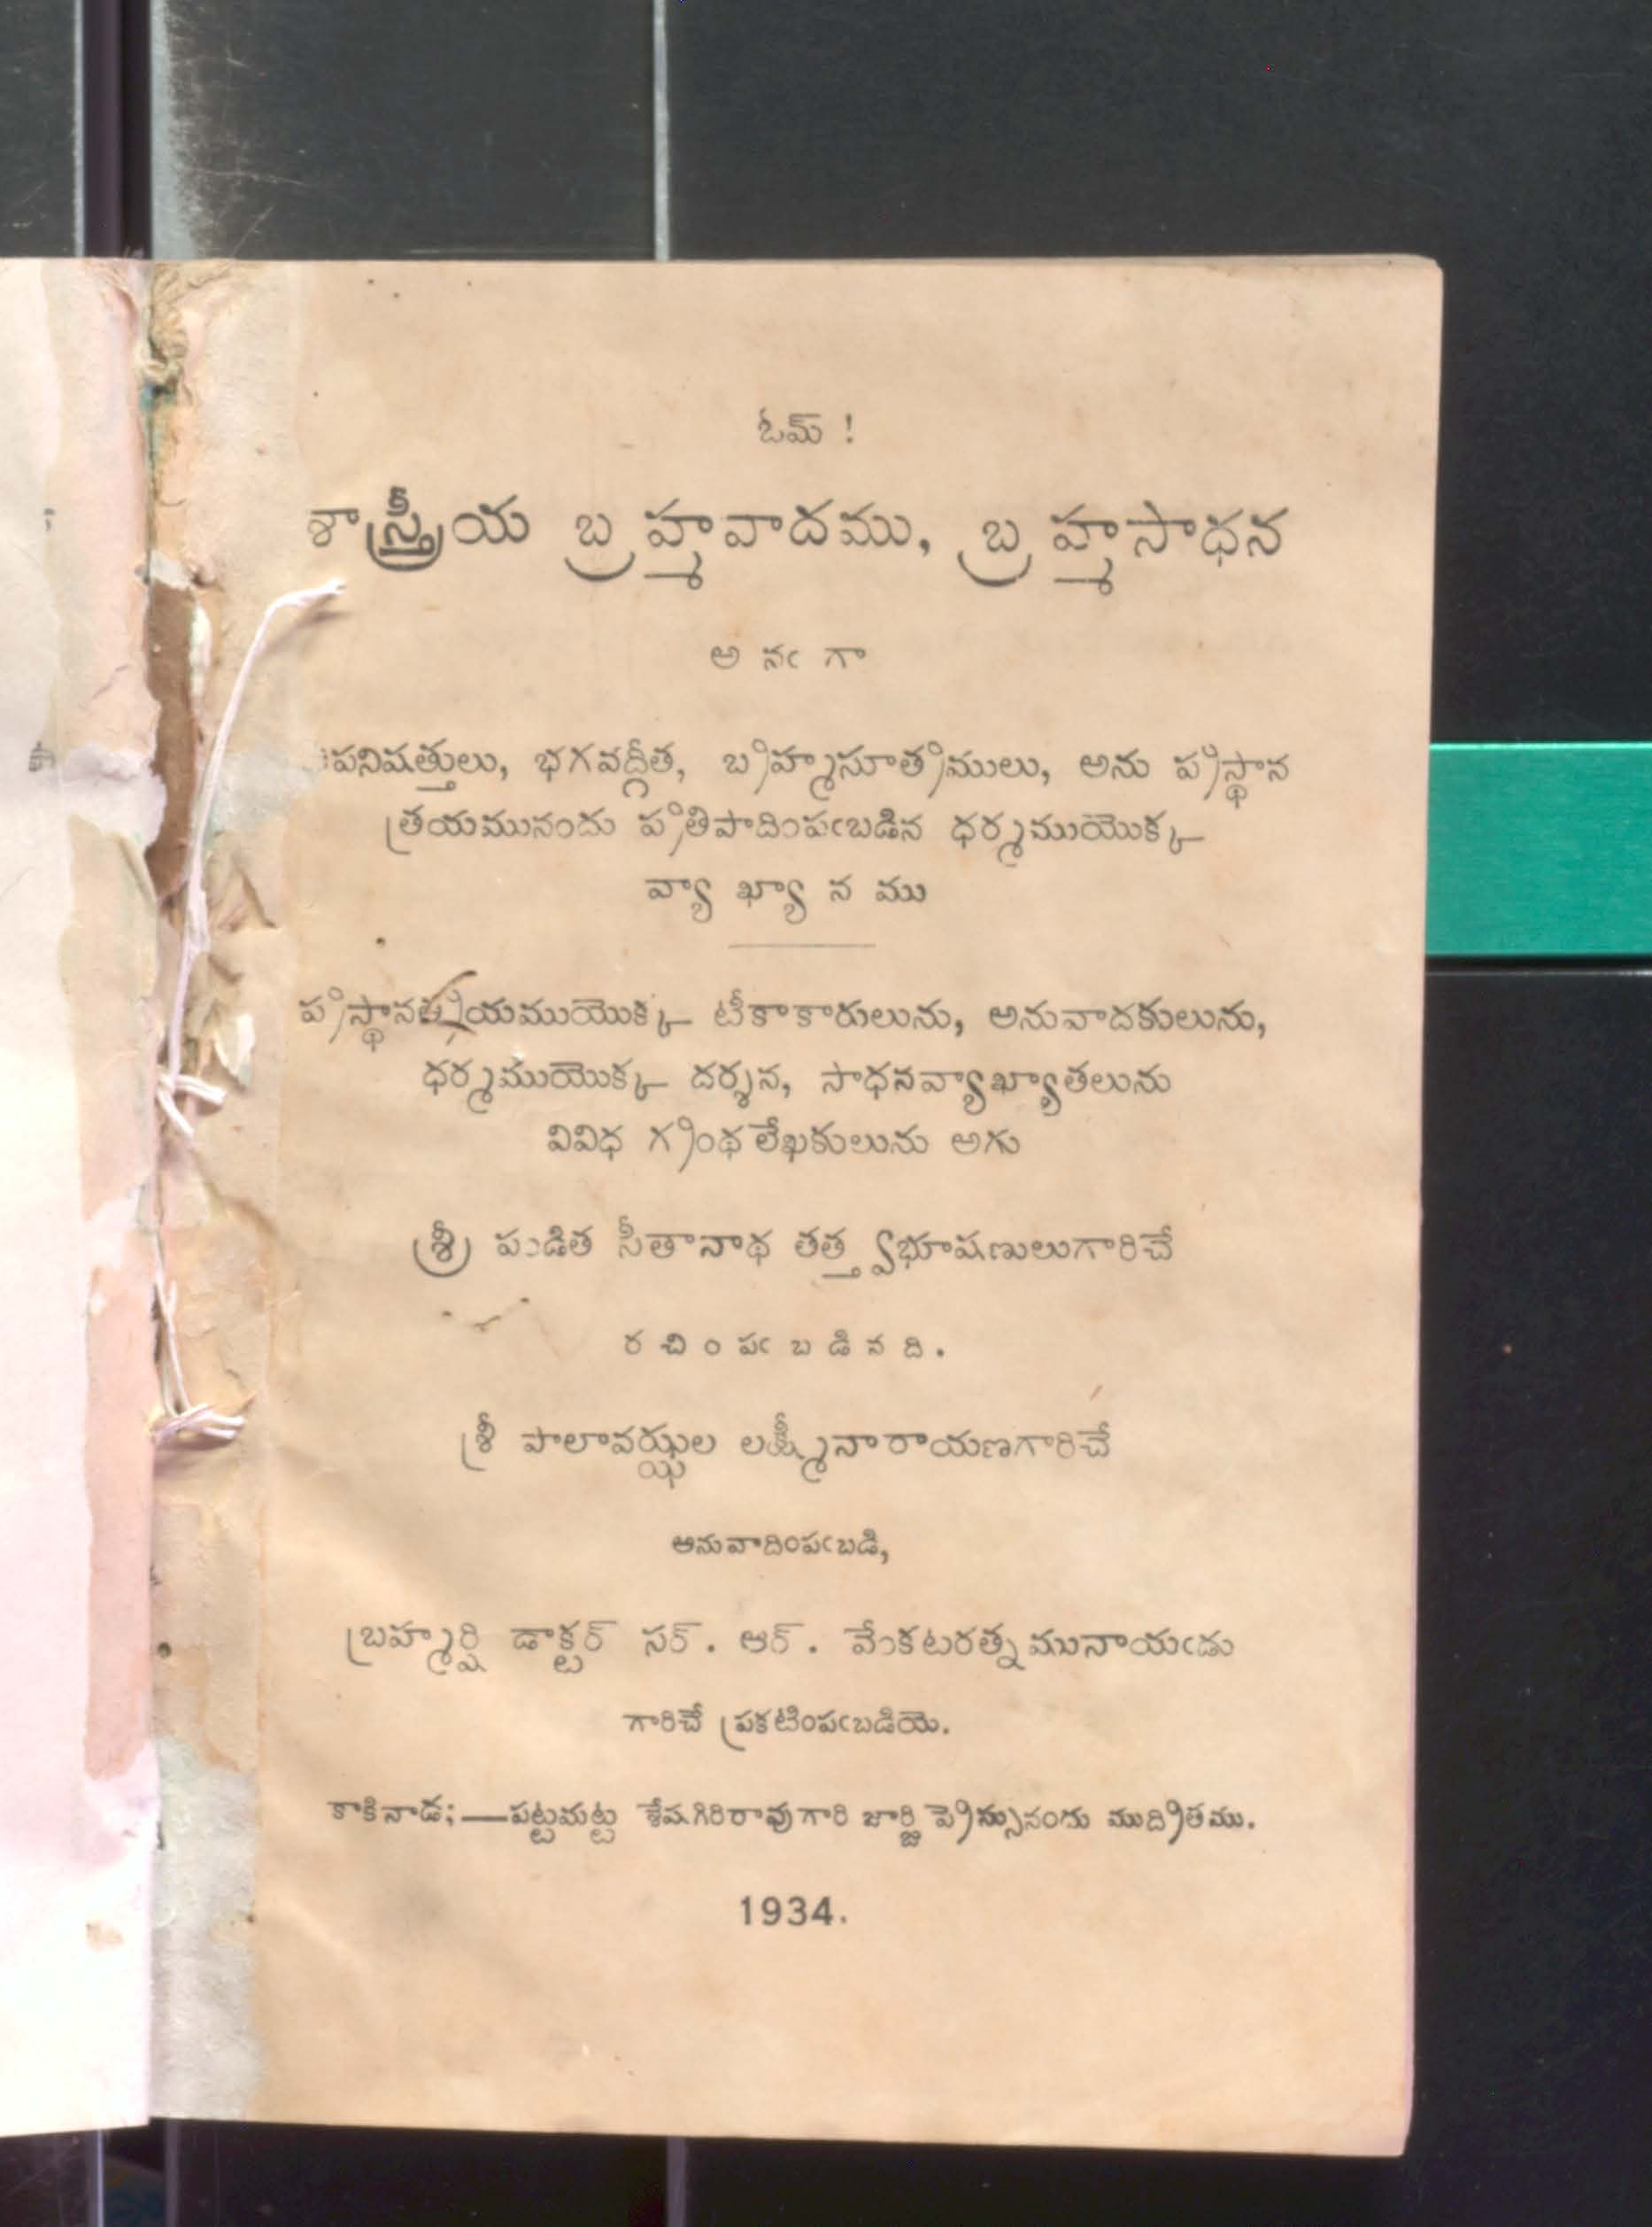 ఓమ్ !
శాస్త్రీయ బ్రహ్మవాదము, బ్రహ్మసాధన
అ నఁ గా
ఉపనిషత్తులు, భగవద్గీత, బ్రహ్మసూత్రములు, అను ప్రస్థాన
త్రయమునందు ప్రతిపాదింపఁబడిన ధర్మముయొక్క
వ్యా ఖ్యా న ము
ప్రస్థానత్రయముయొక్క టీకాకారులును, అనువాదకులును,
ధర్మముయొక్క దర్శన, సాధనవ్యాఖ్యాతలును
వివిధ గ్రంథలేఖకులును అగు
శ్రీ పండిత సీతానాథ తత్త్వభూషణులుగారిచే
ర చి ం పఁ బ డి న ది .
శ్రీ పాలావఝ్ఝల లక్ష్మీనారాయణగారిచే
అనువాదింపఁబడి,
బ్రహ్మర్షి డాక్టర్ సర్. ఆర్. వేంకటరత్నమునాయఁడు
గారిచే ప్రకటింపఁబడియె.
కాకినాడ;—పట్టమట్ట శేషగిరిరావుగారి జార్జి ప్రెస్సునందు ముద్రితము.
1934.